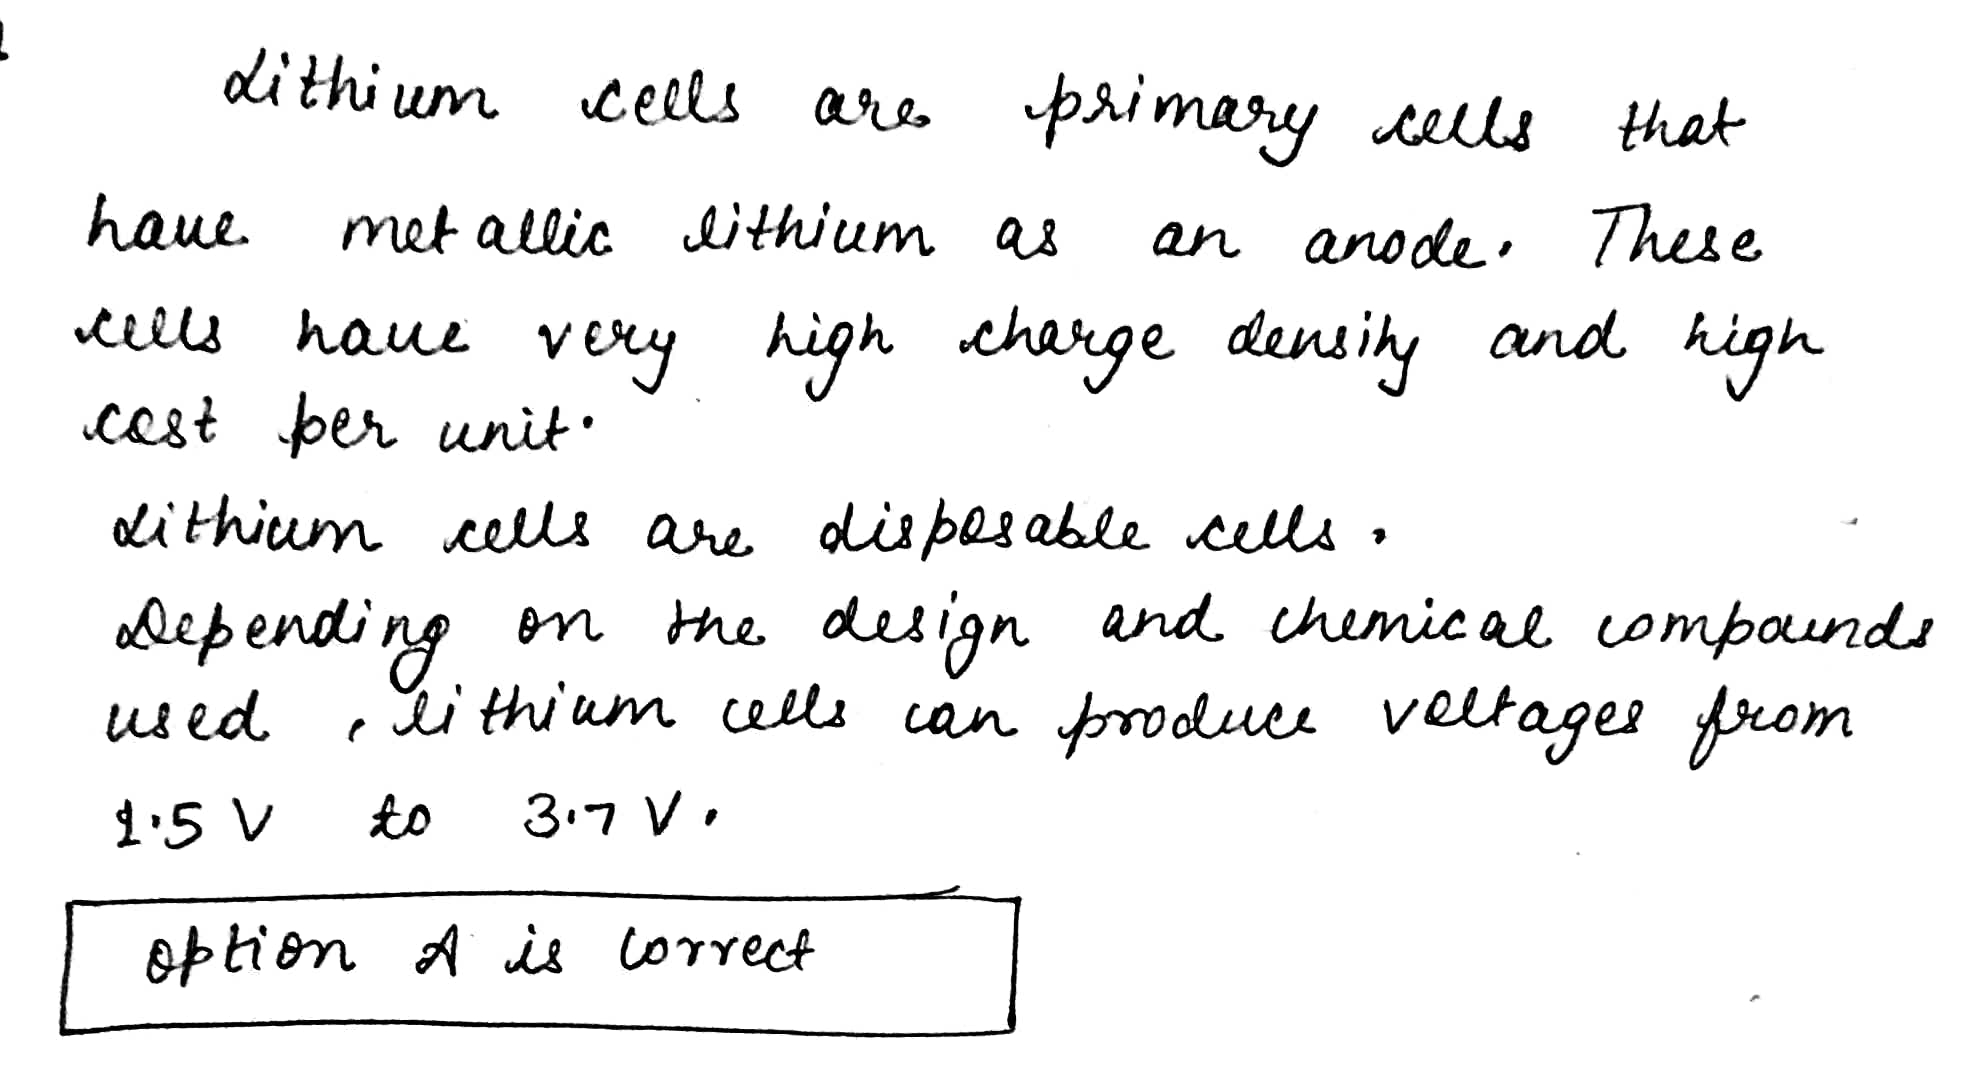 Lithium cells are primary cells that
have metallic lithium as an anode. These
cells have very high charge density and high
cost per unit.
Lithium cells are disposable cells.
Depending on the design and chemical compounds
used, lithium cells can produce voltages from
1.5 V to 3.7 V.
option A is correct